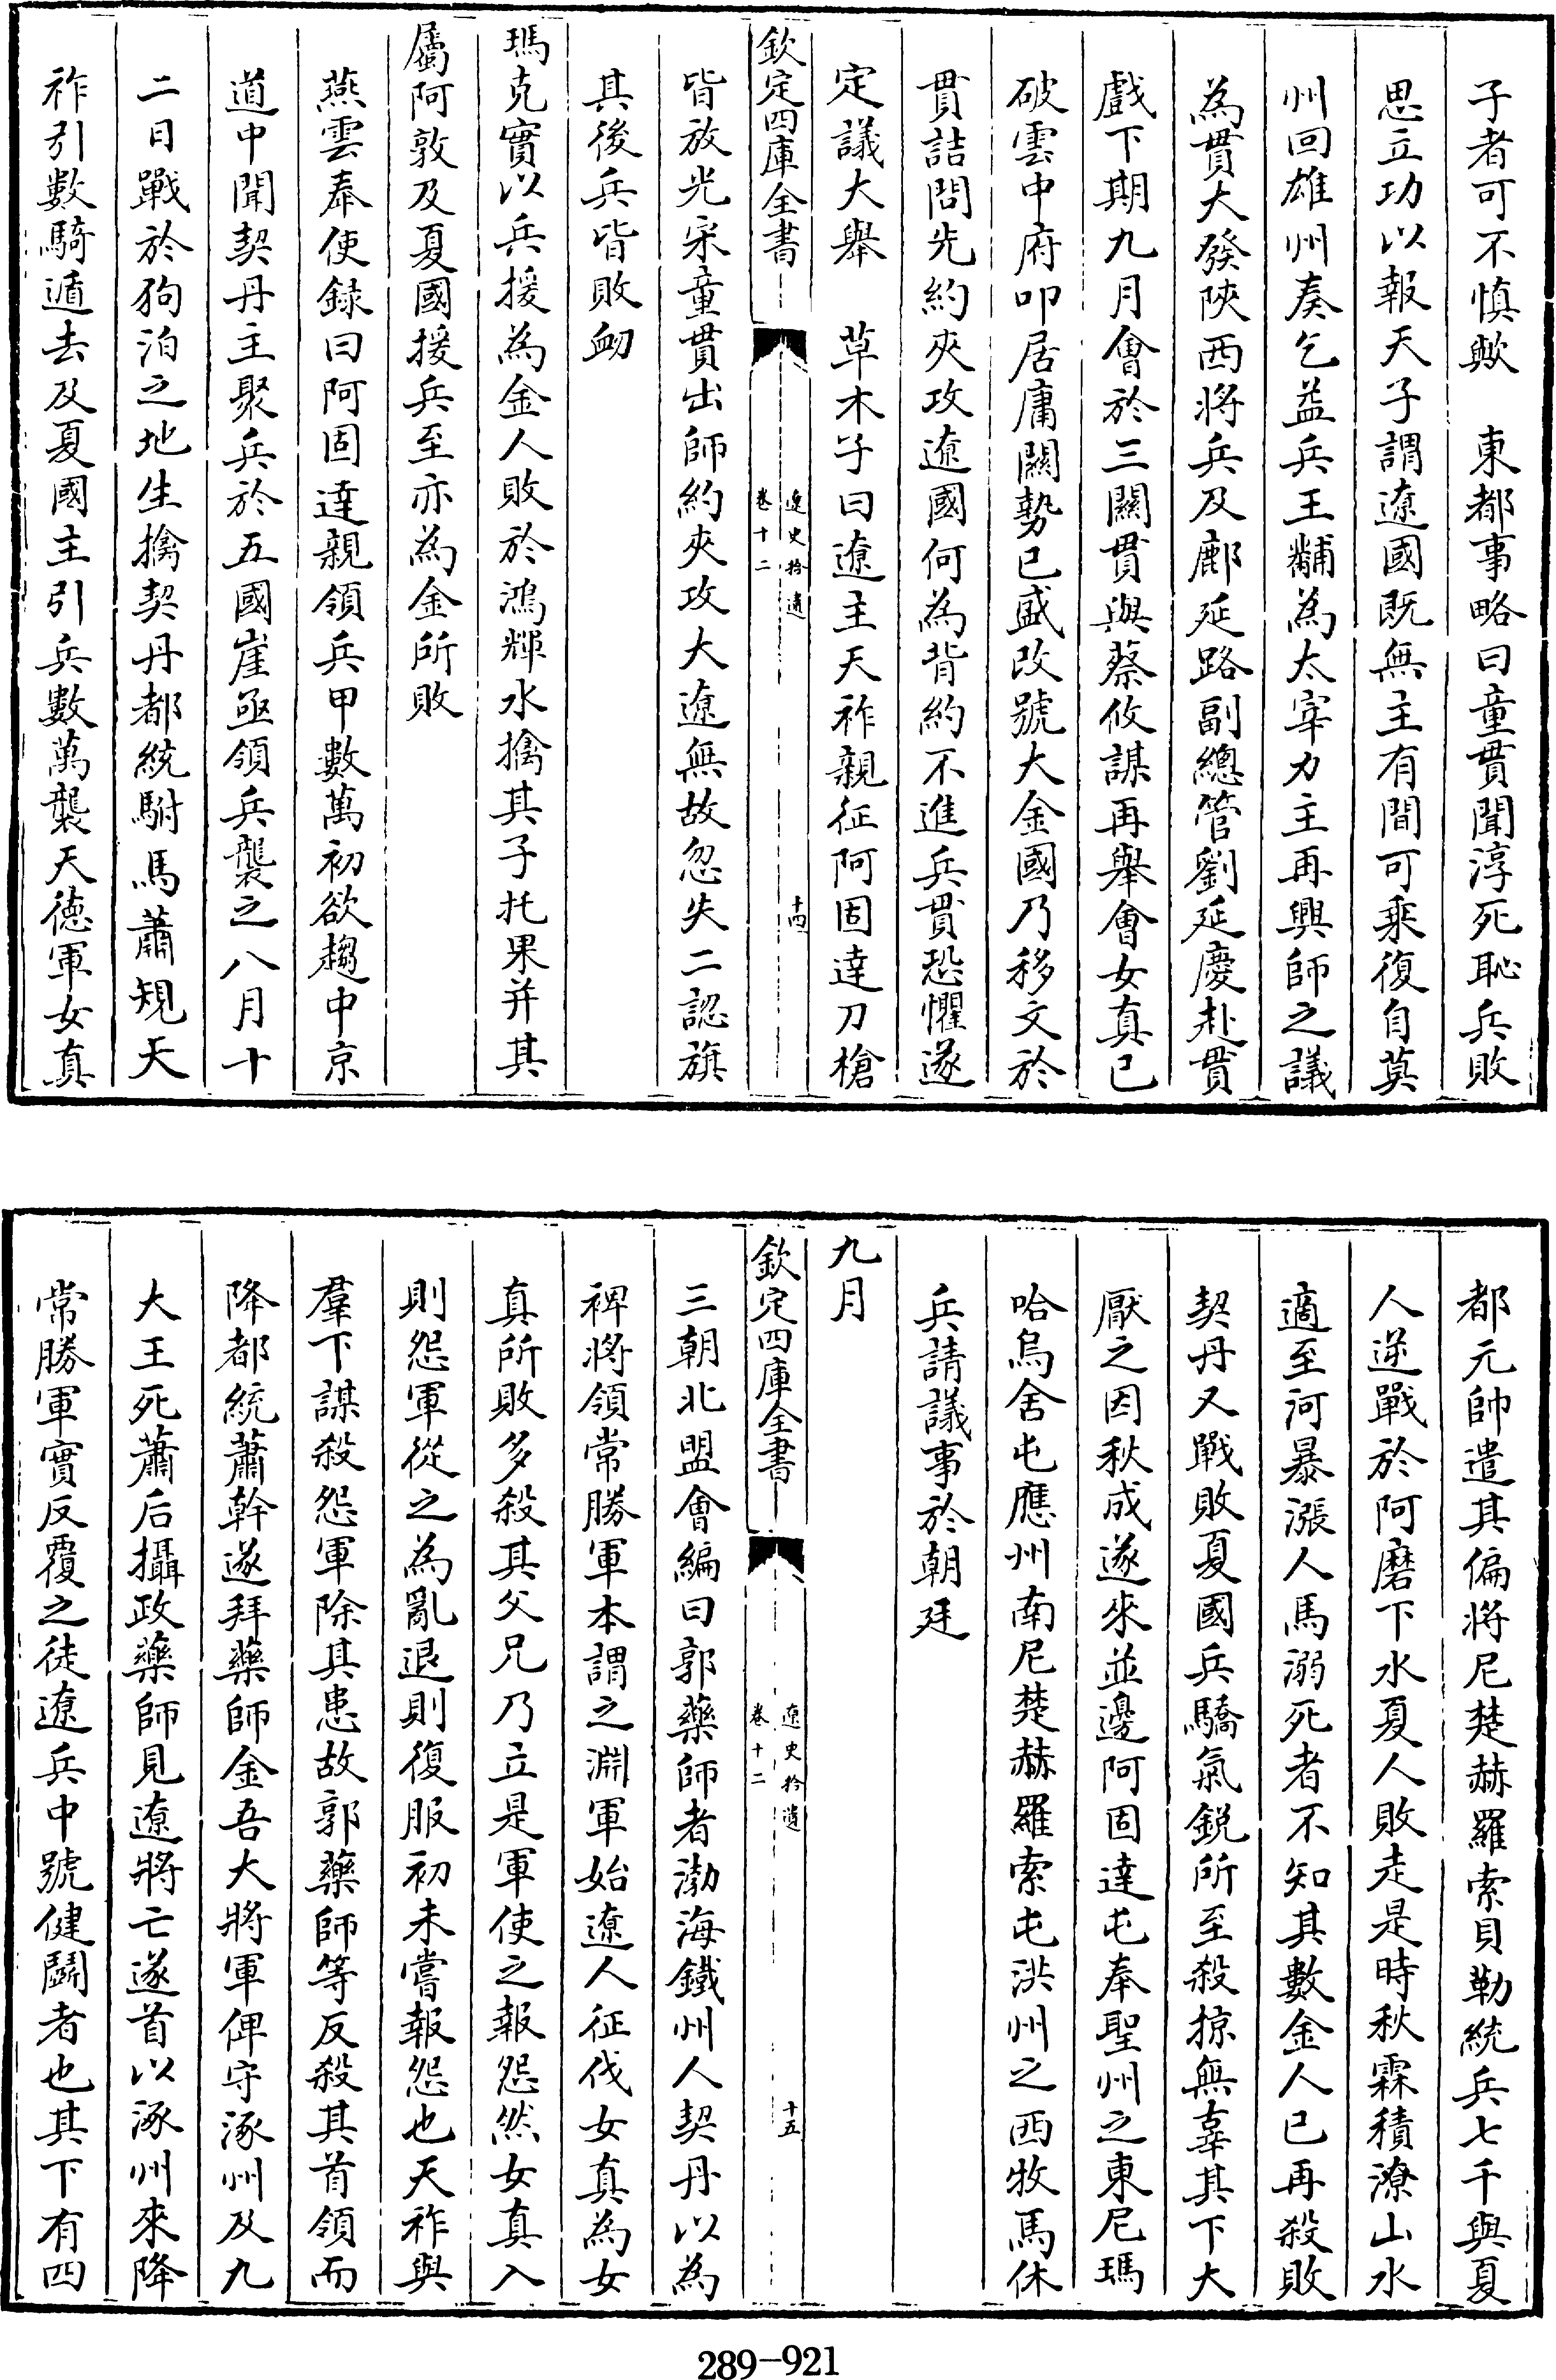 子者可不慎歟　東都事略曰童貫聞淳死恥兵敗
思立功以報天子謂遼國既無主有間可乘復自莫
州回雄州奏乞益兵王黼為太宰力主再興師之議
為貫大發陜西將兵及鄜延路副總管劉延慶赴貫
戲下期九月會於三關貫與蔡攸謀再舉會女真已
破雲中府叩居庸關勢已盛改號大金國乃移文於
貫詰問先約夾攻遼國何為背約不進兵貫恐懼遂
定議大舉　草木子曰遼主天祚親征阿固達刀槍
欽定四庫全書
遼史拾遺
卷十二
十四
皆放光宋童貫出師約夾攻大遼無故忽失二認旗
其後兵皆敗衂
瑪克實以兵援為金人敗於鴻輝水擒其子托果并其
屬阿敦及夏國援兵至亦為金所敗
燕雲奉使録曰阿固達親領兵甲數萬初欲趨中京
道中聞契丹主聚兵於五國崖亟領兵襲之八月十
二日戰於狗泊之地生擒契丹都統駙馬蕭規天
祚引數騎遁去及夏國主引兵數萬襲天德軍女真
都元帥遣其偏將尼楚赫羅索貝勒統兵七千與夏
人逆戰於阿磨下水夏人敗走是時秋霖積潦山水
適至河暴漲人馬溺死者不知其數金人已再殺敗
契丹又戰敗夏國兵驕氣鋭所至殺掠無辜其下大
厭之因秋成遂來並邊阿固達屯奉聖州之東尼瑪
哈烏舍屯應州南尼楚赫羅索屯洪州之西牧馬休
兵請議事於朝廷
九月
欽定四庫全書
遼史拾遺
卷十二
十五
三朝北盟會編曰郭藥師者渤海鐵州人契丹以為
裨將領常勝軍本謂之淵軍始遼人征伐女真為女
真所敗多殺其父兄乃立是軍使之報怨然女真入
則怨軍從之為亂退則復服初未嘗報怨也天祚與
羣下謀殺怨軍除其患故郭藥師等反殺其首領而
降都統蕭幹遂拜藥師金吾大將軍俾守涿州及九
大王死蕭后攝政藥師見遼將亡遂首以涿州來降
常勝軍實反覆之徒遼兵中號健鬭者也其下有四
289-921